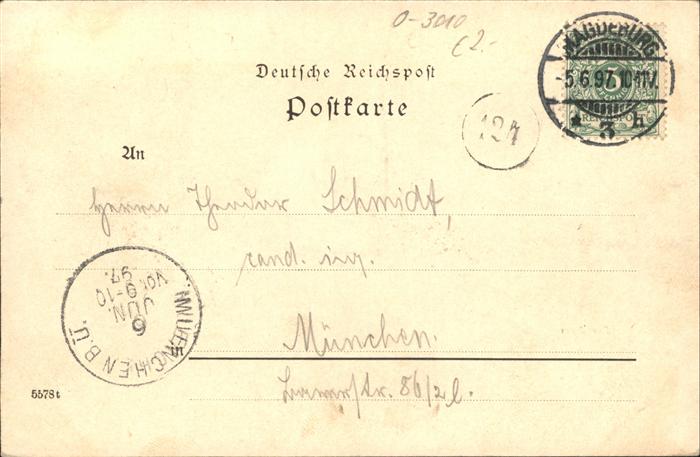 0-3010
€2.-
MAGDEBURG
-5.6.97. 10-11V.
* 3 h
5
Deutsche Reichspost
Postkarte
124
An
Herrn Theodor Schmidt,
cand. ing.
MUENCHEN B.Ü.
6
JUN.
Vor. 9-10
97.
In
München.
86/2 l.
5578t